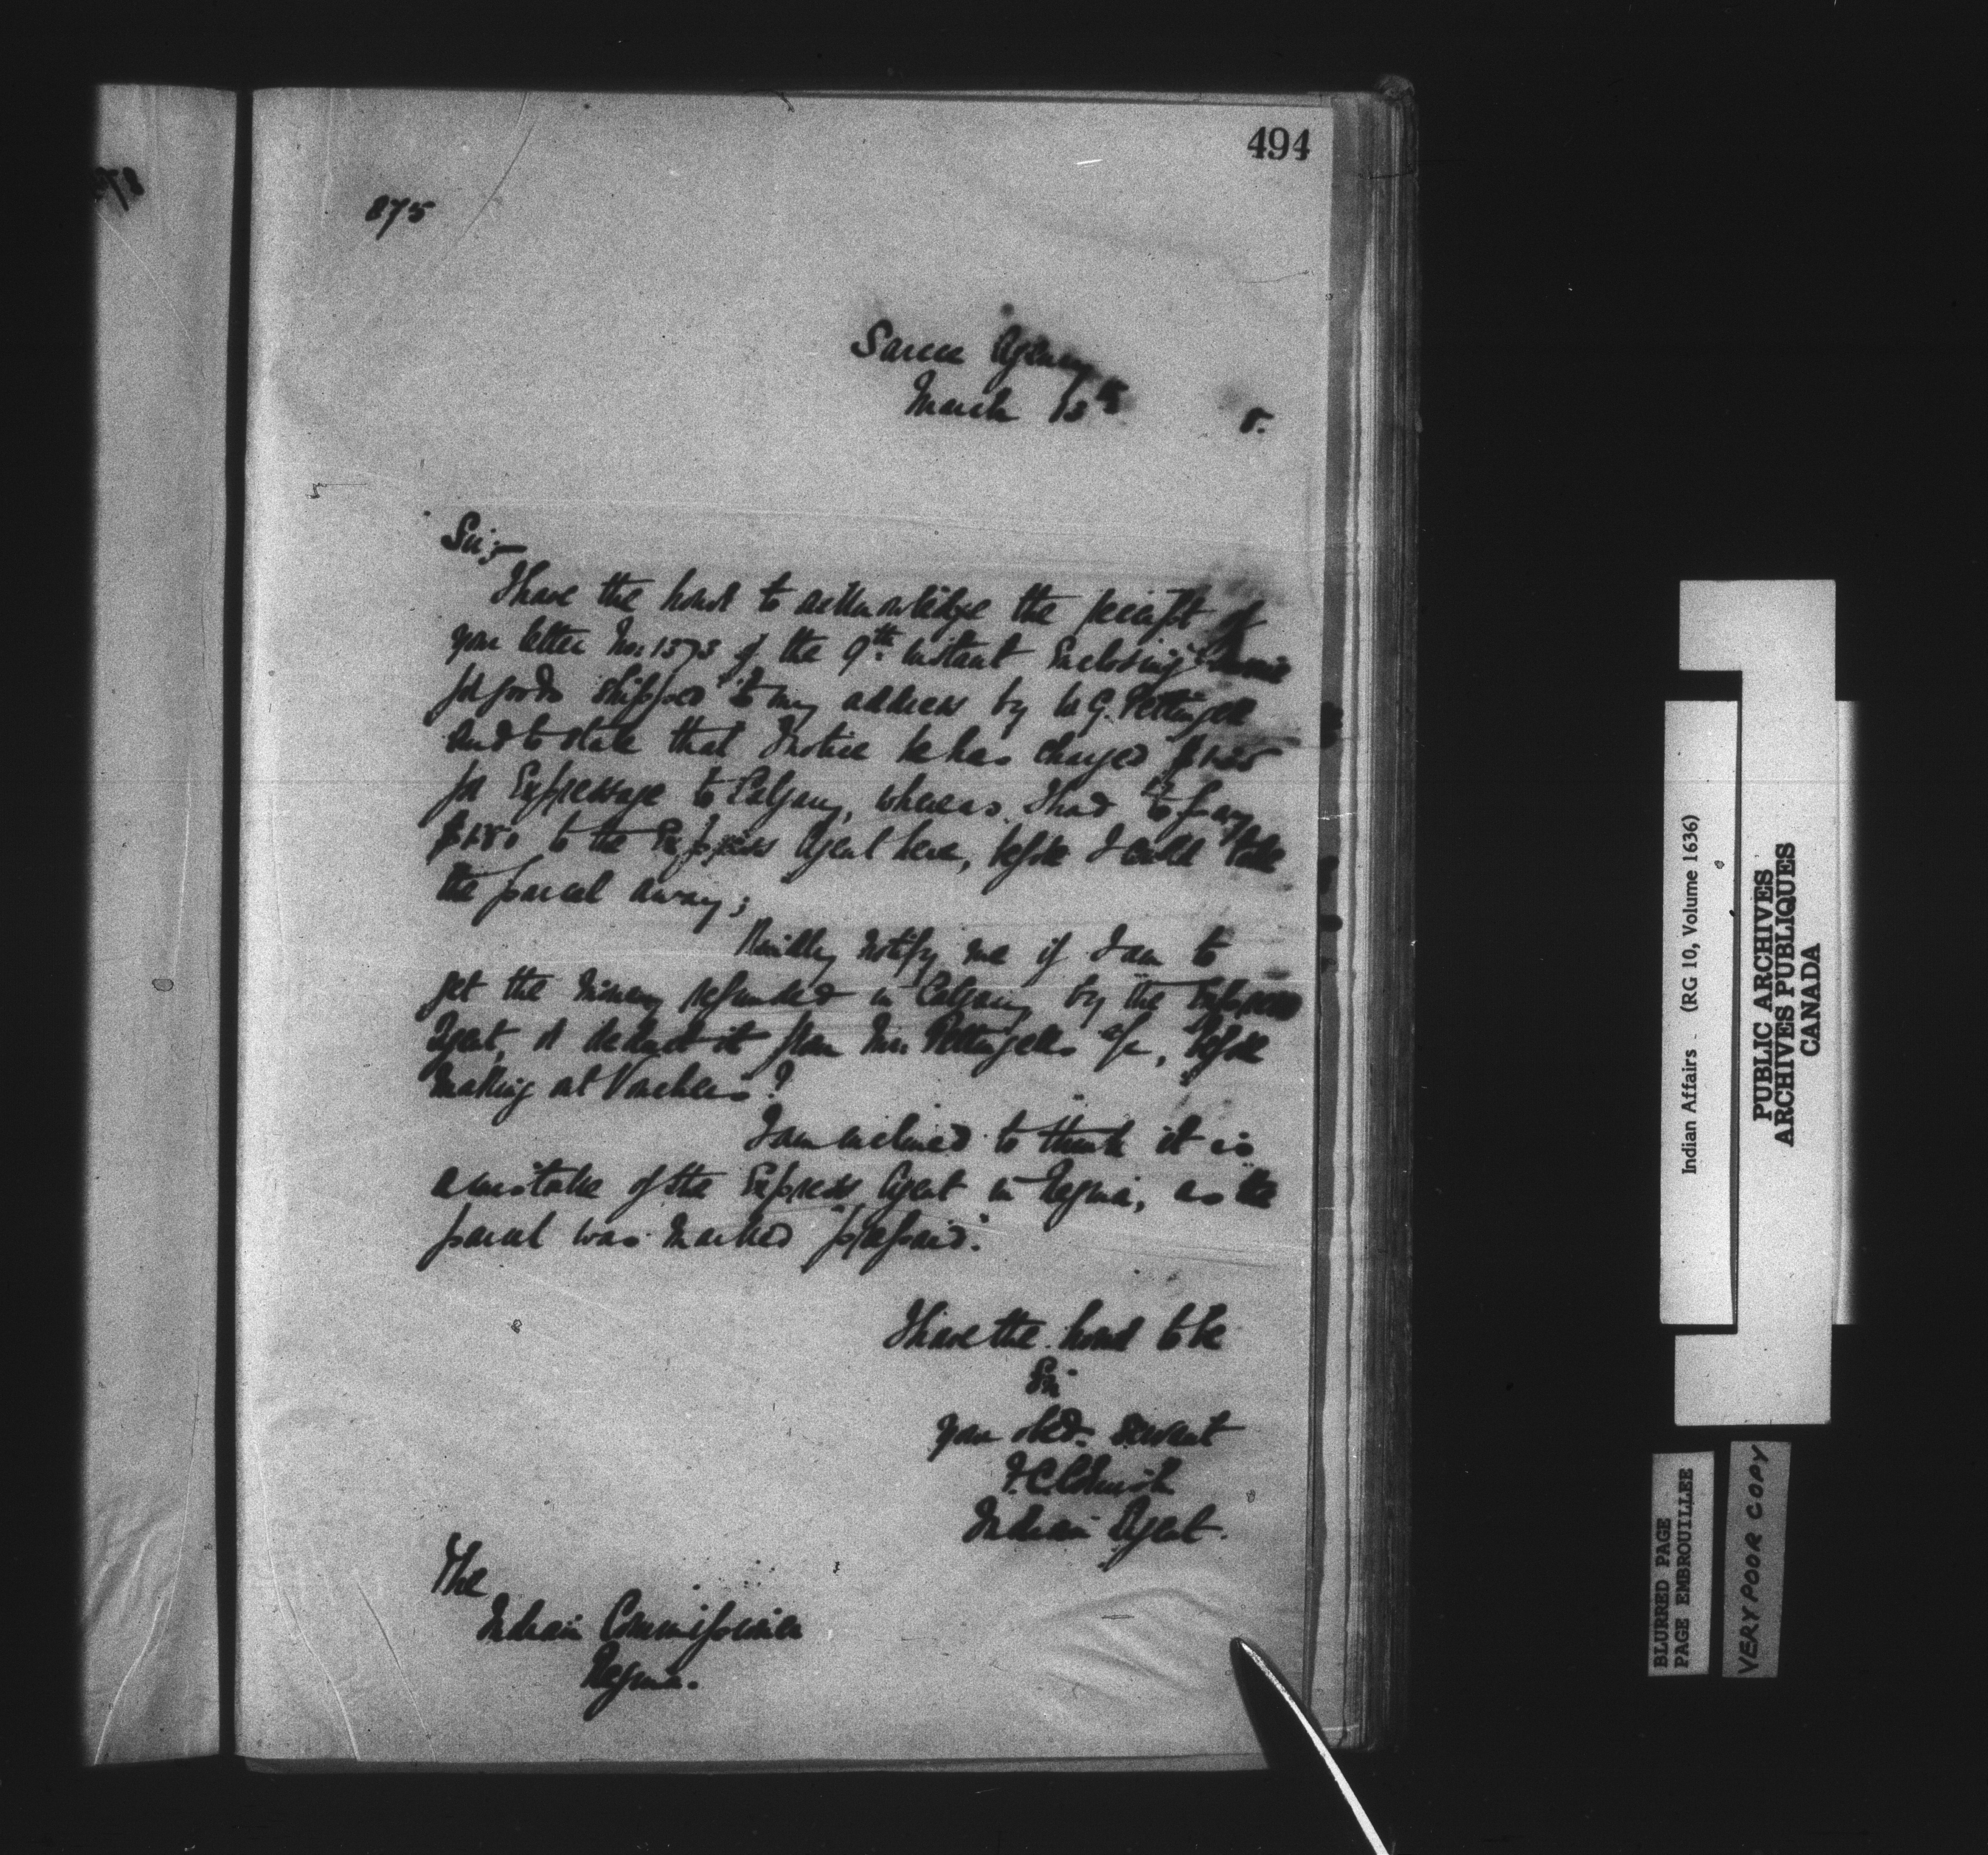 494
875
Sarcee Agency
March 13th 8.
Sir;-
I have the honor to acknowledge the receipt of
your letter No. 1573 of the 9th instant Enclosing
for goods shipped to my address by W G. Pettingell
and to state that I notice he has charged $1.25
for Expressage to Calgary, whereas I had to pay
$1.80 to the Express Agent here, before I could take
the parcel away;
Kindly notify me if I am to
get the money refunded in Calgary by the Express
Agent, or deduct it from Mr. Pettingells a/c, before
making out Vouchers?
I am inclined to think it is
a mistake of the Express Agent in Regina, as the
parcel was marked "prepaid."
I have the honor to be
Sir
your obed. servant
F.C. Cornish
Indian Agent.
The
Indian Commissioner
Regina.
Indian Affairs. (RG 10, Volume 1636)
PUBLIC ARCHIVES
ARCHIVES PUBLIQUES
CANADA
BLURRED PAGE
PAGE EMBROUILLEE
VERY POOR COPY